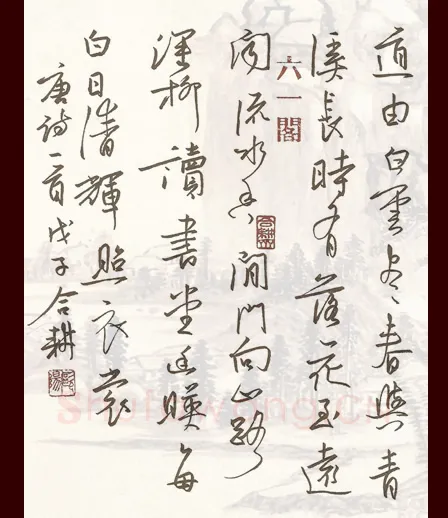 道由白雲盡春與青
溪長時有落花至遠
流水香閒門向山路
深柳讀書堂幽映每
白日清輝照衣裳
唐詩一首戊子合耕
六一閣